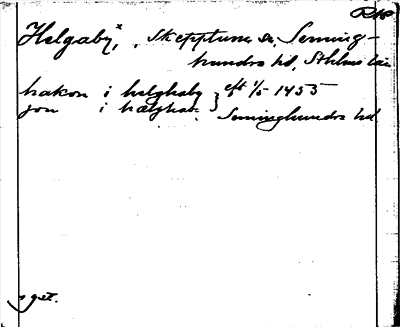 Helgaby,ˣ, Skepptuna sn, Seming-
hundra hd, Sthlms län
hakon i helghaby } eft 1/5 1455
jon i hælghab. } Seminghundra hd